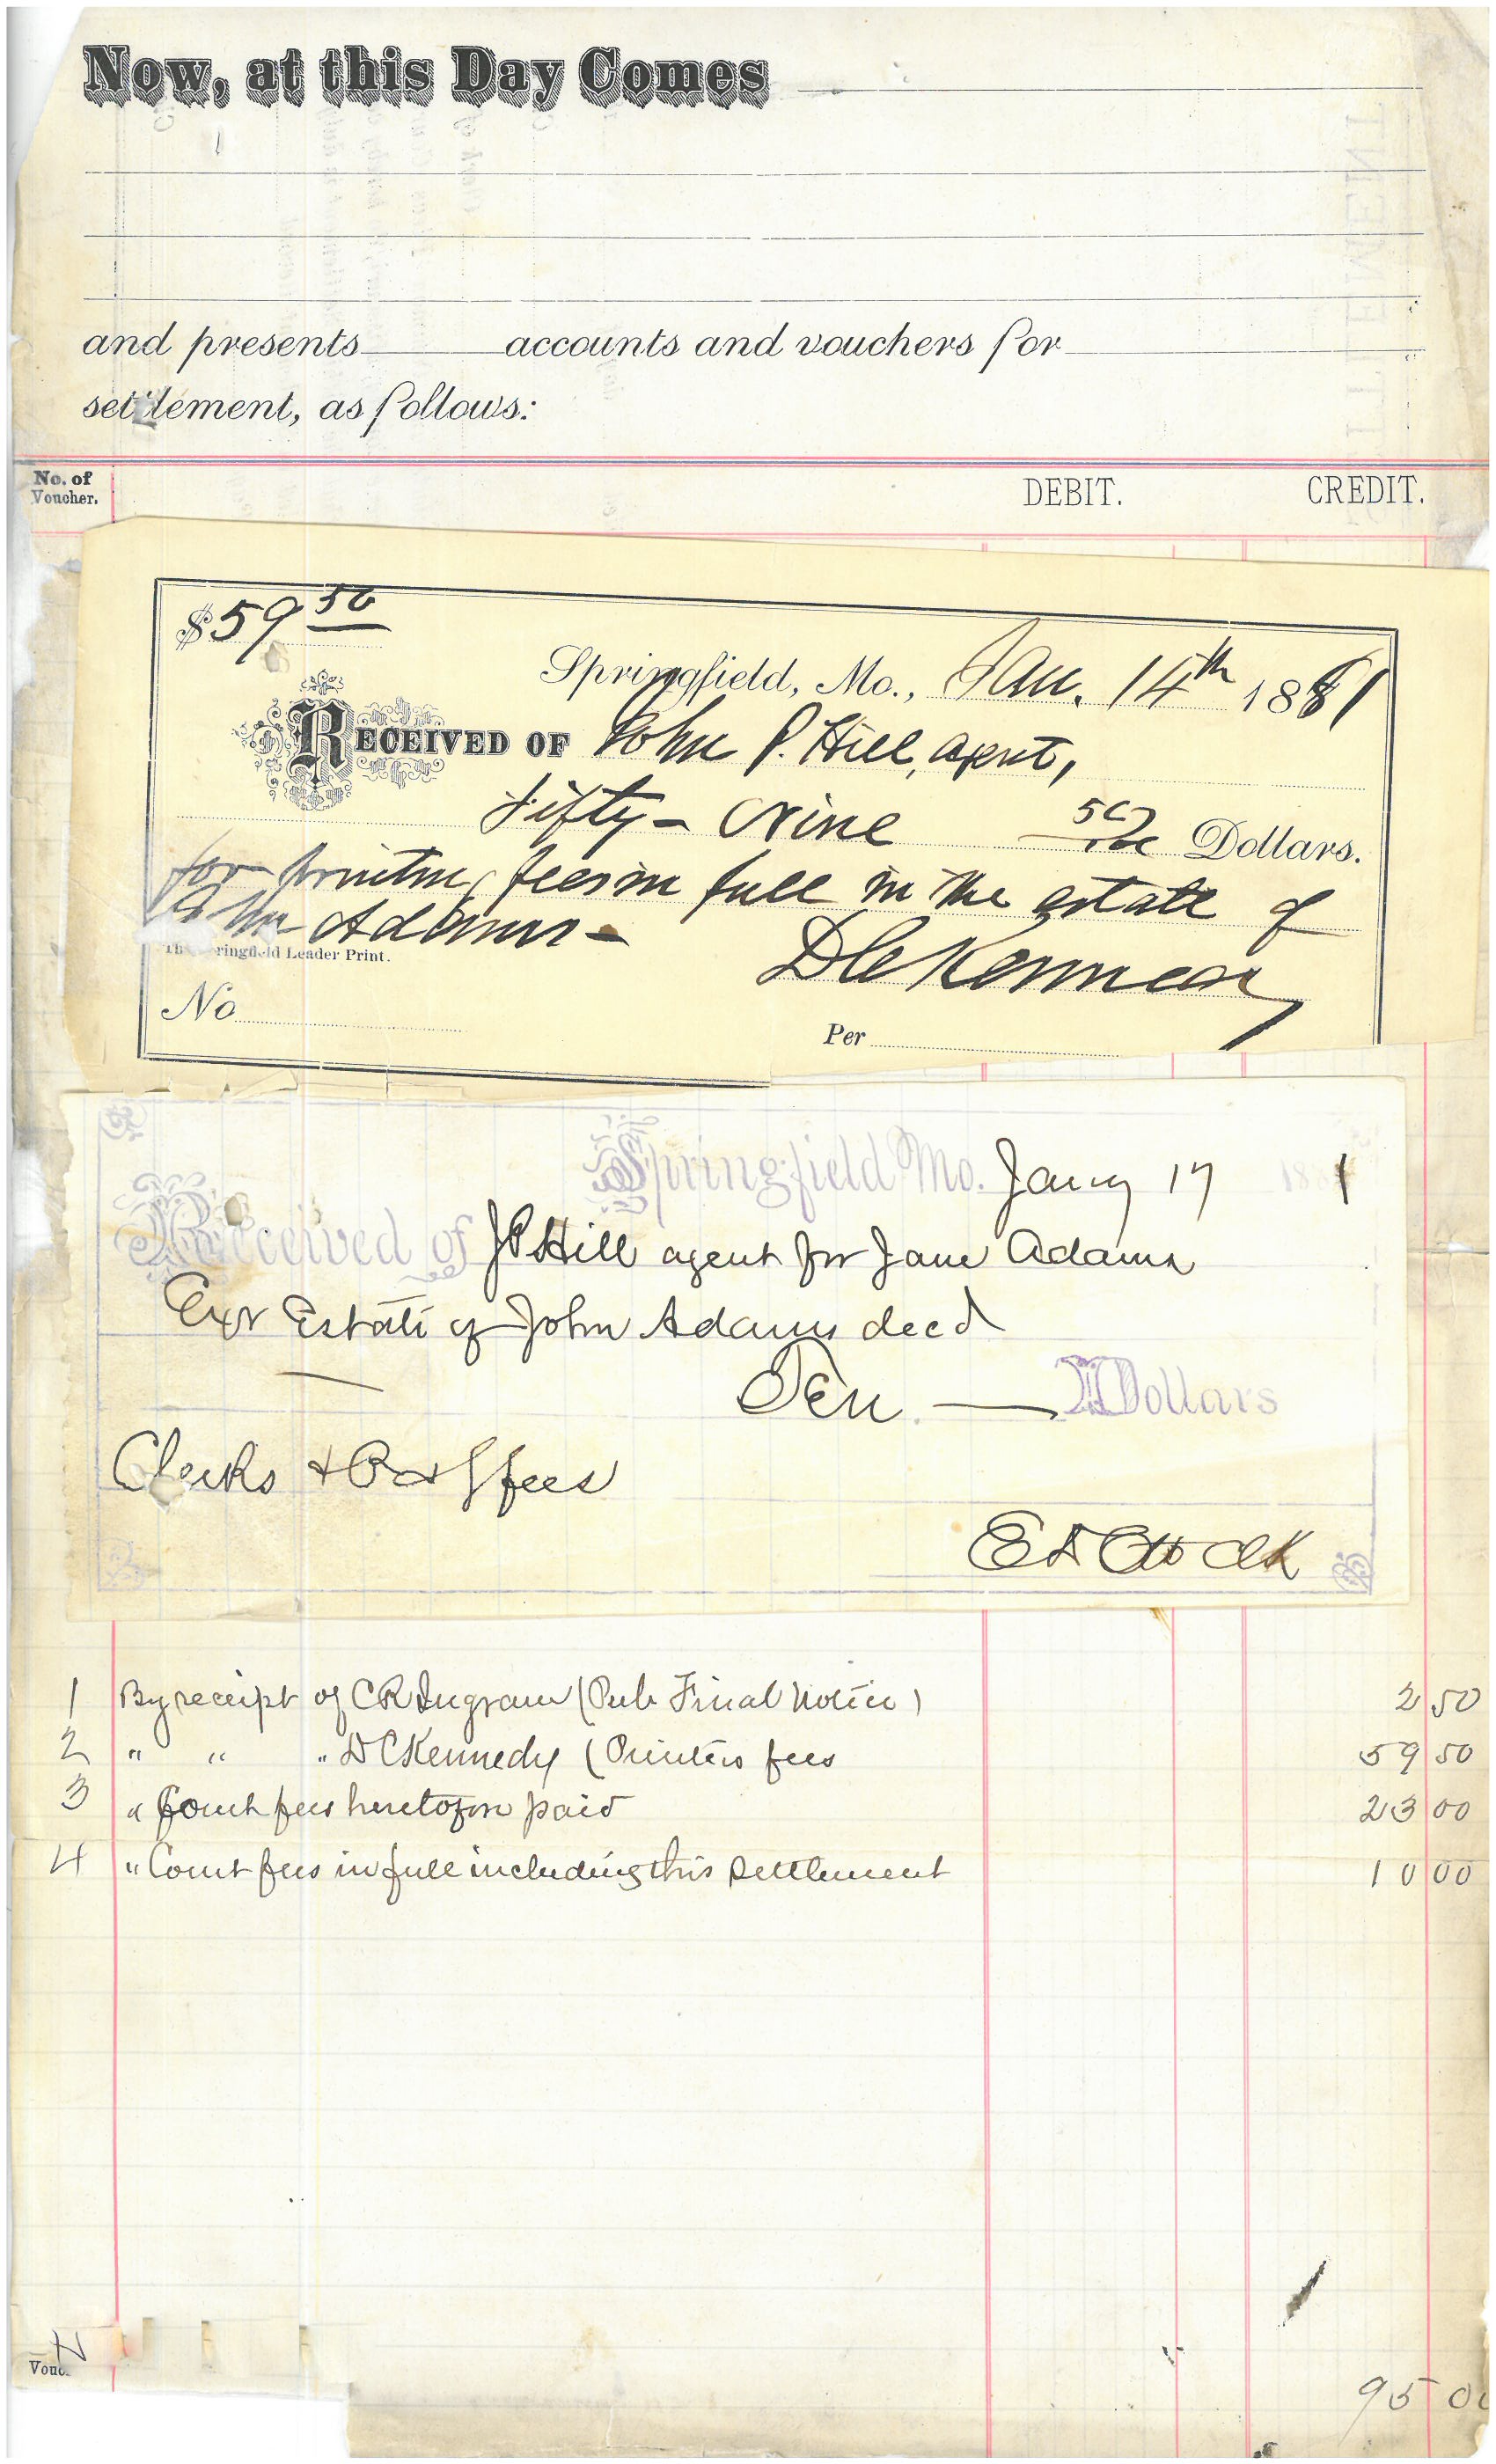 Now, at this Day Comes
and presents accounts and vouchers for
settlement, as follows:
No. of
Voucher.
DEBIT. CREDIT.
$59 50
Springfield, Mo., Jan. 14th 1881
RECEIVED OF John P. Hill, agent,
Fifty-Nine 50/100 Dollars.
for printing fees in full in the estate of
John Adams-
The Springfield Leader Print.
D C Kennedy
No
Per
Springfield Mo. Jany 17 188 1
Received of J P Hill agent for Jane Adams
Exr Estate of John Adams decd
Ten — Dollars
Clerks & fees
E D Ott Clk
1 By receipt of C R Ingram (Pub Final Notice) 2 50
2 " " " D C Kennedy (Printers fees 59 50
3 " Court fees heretofore paid 23 00
4 " Court fees in full including this settlement 10 00
Vouc
95 00